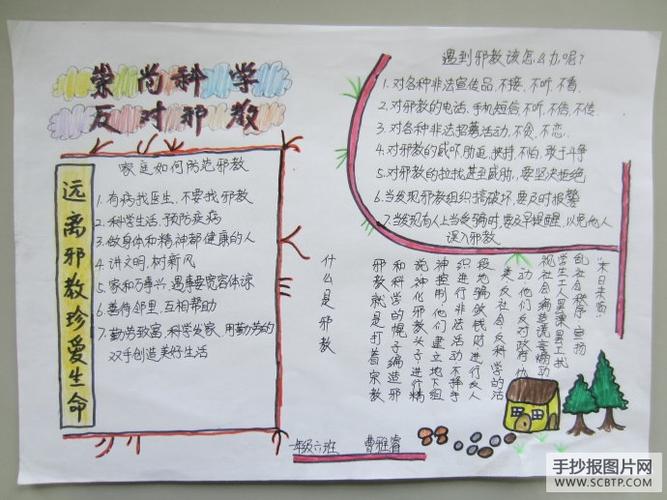 崇尚科学
反对邪教
远离邪教珍爱生命
家庭如何防范邪教
1.有病找医生,不要找邪教
2.科学生活,预防疾病
3.做身体和精神都健康的人
4.讲文明,树新风
5.家和万事兴,遇事要宽容体谅
6.善待邻里,互相帮助
7.勤劳致富,科学发家,用勤劳的
双手创造美好生活
遇到邪教该怎么办呢?
1.对各种非法宣传品不接,不听,不看.
2.对邪教的电话,手机短信不听,不信,不传.
3.对各种非法招募活动,不贪,不恋.
4.对邪教的威吓,胁迫,挟持,不怕,敢于斗争
5.对邪教的拉扰甚至威胁,要坚决拒绝
6.当发现邪教组织搞破坏,要及时报警
7.当发现有人上当受骗时,要及早提醒,以免他人
误入邪教
什么是邪教
邪教就是打着宗教
和科学的幌子编造邪
说神化邪教头子进行精
神控制他们建立地下组
织进行非法活动不择手
段地骗敛钱财进行反人
类反社会反科学的活
动他们反对政府仇
视社会编造谎言煽动
学生工人罢课罢工扰
乱社会秩序宣扬
"末日来临"
一年级六班 曹雅睿
手抄报图片网
WWW.SCBTP.COM